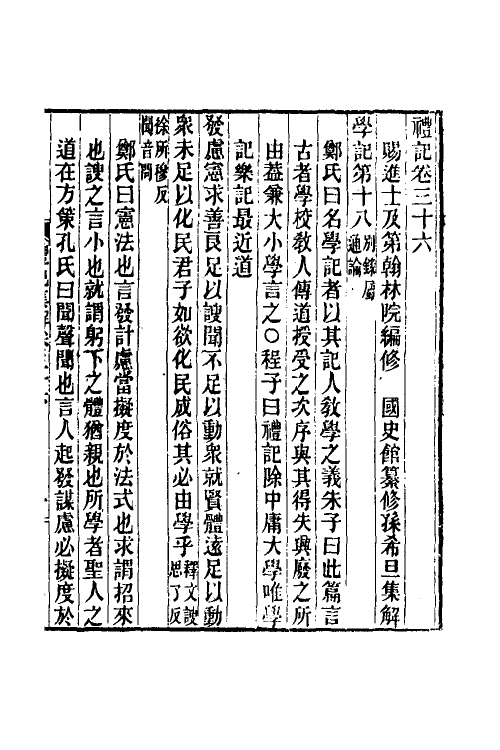 禮記卷三十六
賜進士及第翰林院編修　國史館纂修孫希旦集解
學記第十八別錄屬通論
鄭氏曰名學記者以其記人教學之義朱子曰此篇言
古者學校教人傳道授受之次序與其得失興廢之所
由蓋兼大小學言之○程子曰禮記除中庸大學唯學
記樂記最近道
發慮憲求善良足以謏聞不足以動衆就賢體遠足以動
衆未足以化民君子如欲化民成俗其必由學乎釋文謏思了反
徐所穆反聞音問
鄭氏曰憲法也言發計慮當擬度於法式也求謂招來
也謏之言小也就謂躬下之體猶親也所學者聖人之
道在方策孔氏曰聞聲聞也言人起發謀慮必擬度於